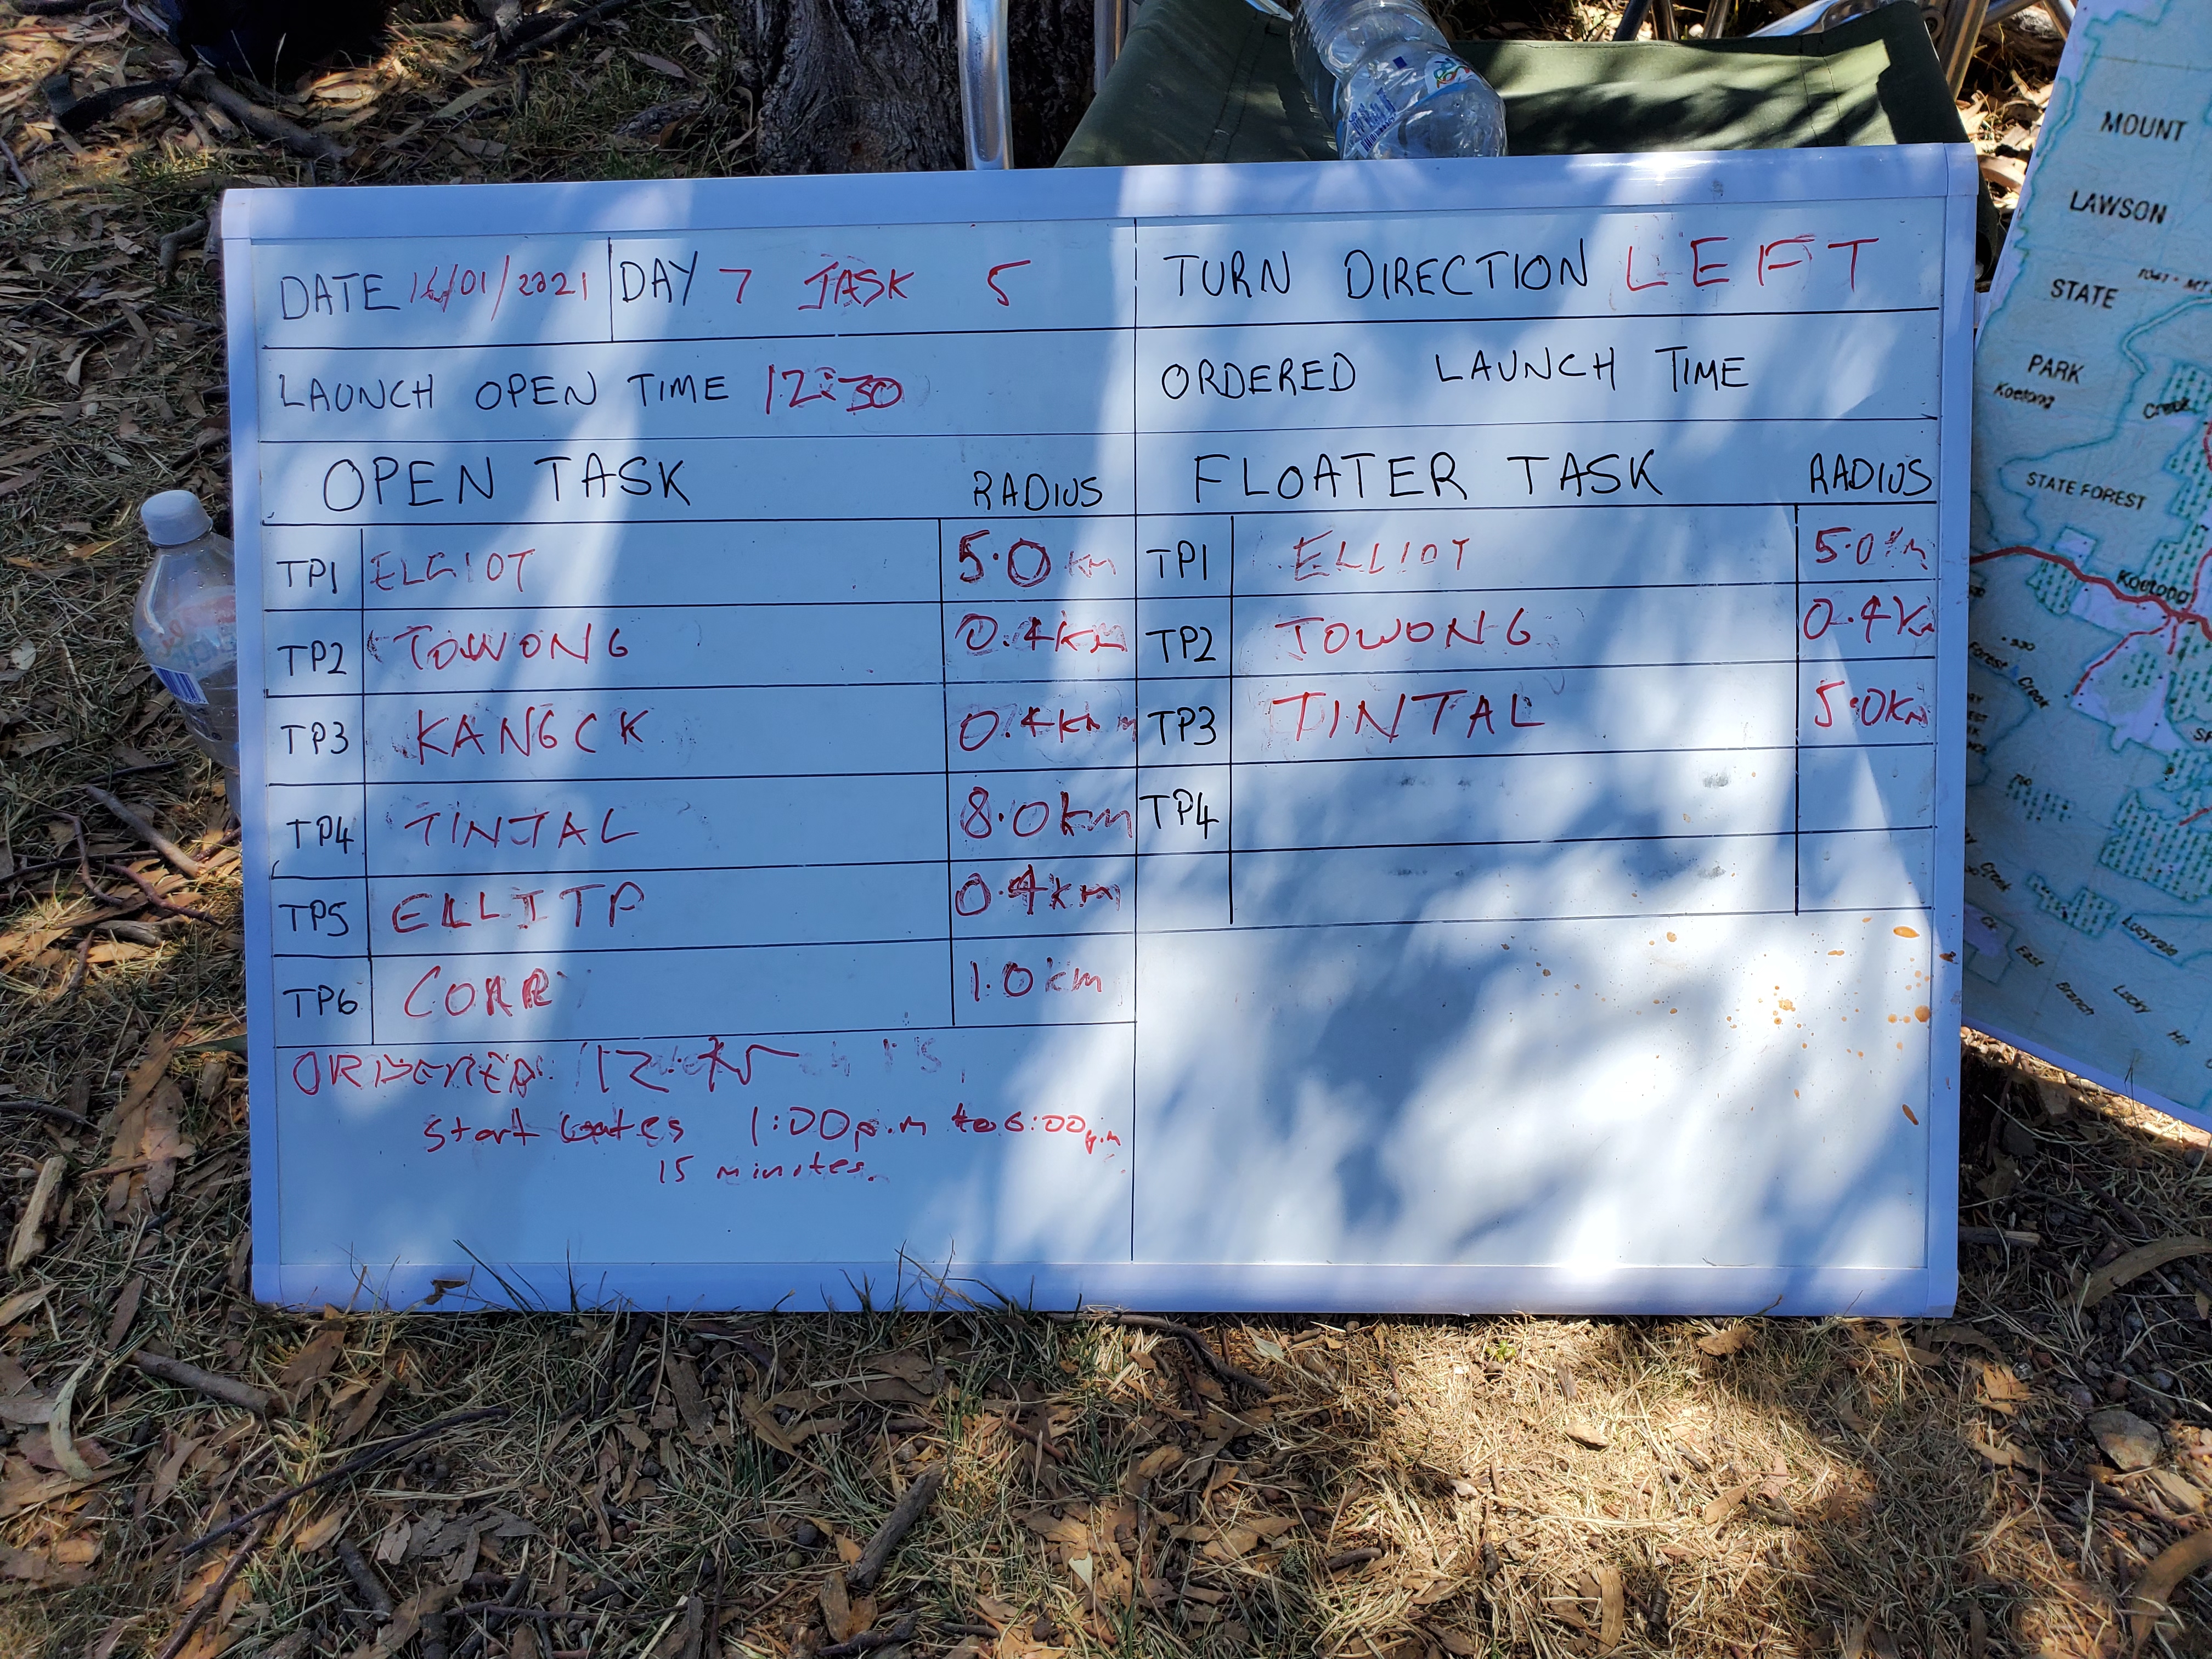 DATE 16/01/2021 DAY 7 TASK 5
LAUNCH OPEN TIME 12:30
OPEN TASK RADIUS
TP1 ELLIOT 5.0 km
TP2 TOWONG 0.4km
TP3 KANGCK 0.4km
TP4 TINTAL 8.0km
TP5 ELLITP 0.4km
TP6 CORR 1.0km
ORDERED
Start Gates 1:00p.m to 6:00p.m
15 minutes.
TURN DIRECTION LEFT
ORDERED LAUNCH TIME
FLOATER TASK RADIUS
TP1 ELLIOT 5.0km
TP2 TOWONG 0.4km
TP3 TINTAL 5.0km
TP4
MOUNT
LAWSON
STATE
PARK
Koetong
Creek
STATE FOREST
Koetong
Forest Creek
Creek
Lucyvale
East
Branch
Lucky